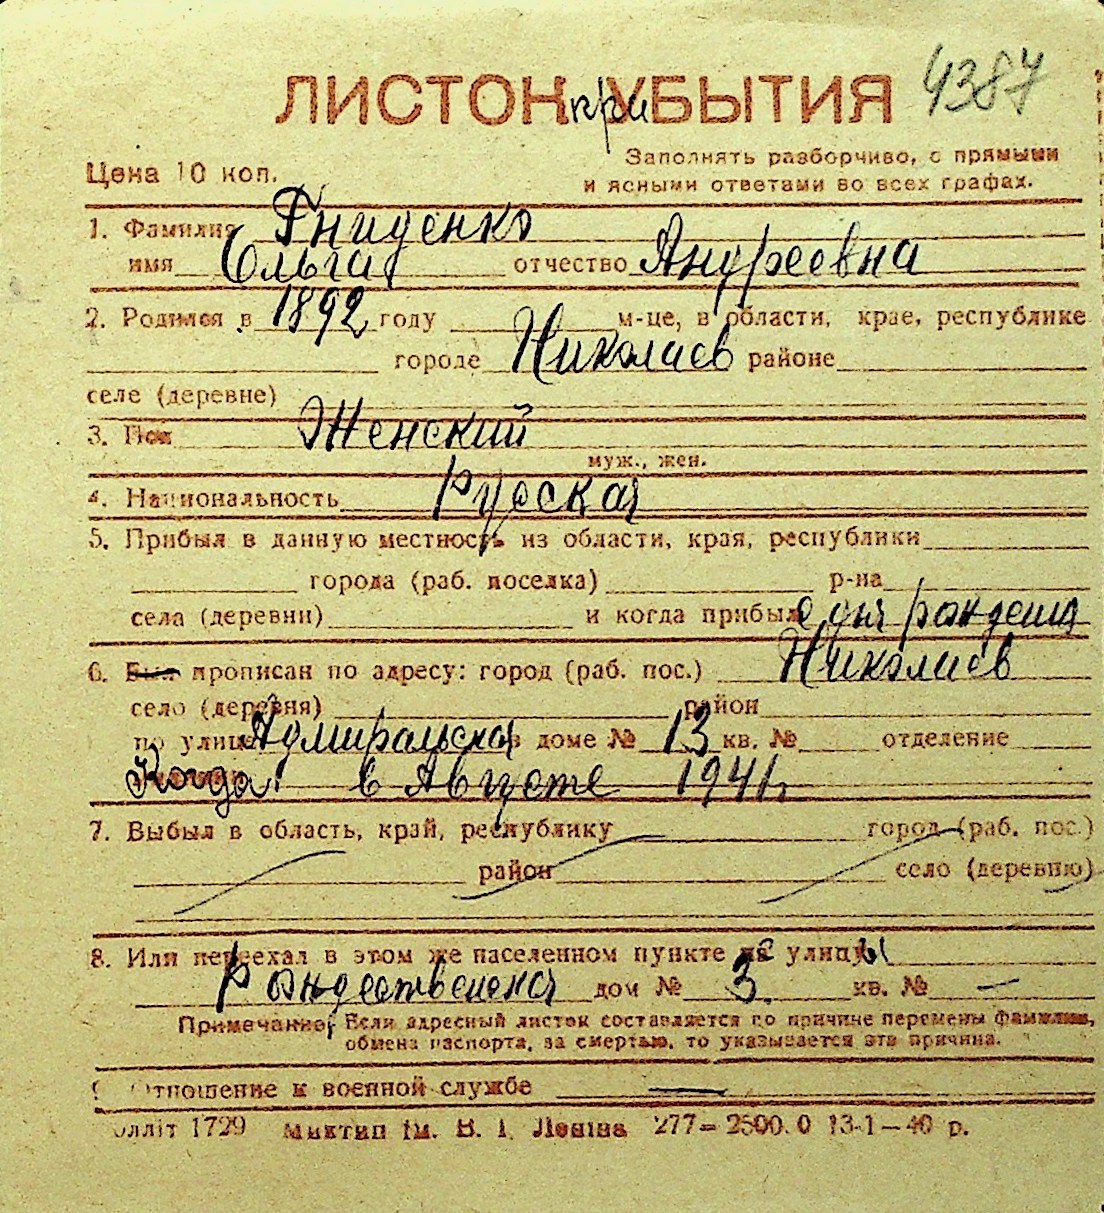 4387
ЛИСТОК при УБЫТИЯ
Цена 10 коп.
Заполнять разборчиво, с прямыми
и ясными ответами во всех графах.
1. Фамилия Гниденко
имя Ольга отчество Андреевна
2. Родился в 1892 году м-це, в области, крае, республике
городе Николаев районе
селе (деревне)
3. Пол Женский
муж., жен.
4. Национальность Русская
5. Прибыл в данную местность из области, края, республики
города (раб. поселка) р-на
села (деревни) и когда прибыл с дня рождения
6. Был прописан по адресу: город (раб. пос.) Николаев
село (деревня) район
по улице Адмиральская в доме № 13 кв. № отделение
Когда в Августе 1941 г.
7. Выбыл в область, край, республику город (раб. пос.)
район село (деревню)
8. Или переехал в этом же населенном пункте с улицы
Рождественская дом № 3 кв. № —
Примечание: Если адресный листок составляется по причине перемены фамилии,
обмена паспорта, за смертью, то указывается эта причина.
9. Отношение к военной службе —
Олліт 1729 Миктип ім. В. І. Леніна 277 — 2500.0 13-1—40 р.